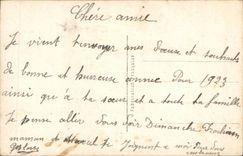 Chère amie
Je vient t'envoyer mes vœux et souhaits
de bonne et heureuse année Pour 1923
ainsi qu'à ta sœur et a toute ta famille
Je pense aller vous voir Dimanche Prochain
maman et Marcel te Joignent a moi Pour vous